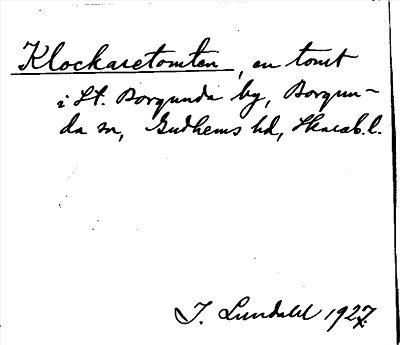 Klockaretomten, en tomt
i St. Borgunda by, Borgun-
da sn, Gudhems hd, Skarab.l.
I. Lundahl 1927.